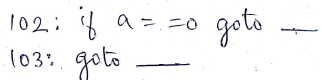 102: if a = =0 goto __
103: goto __